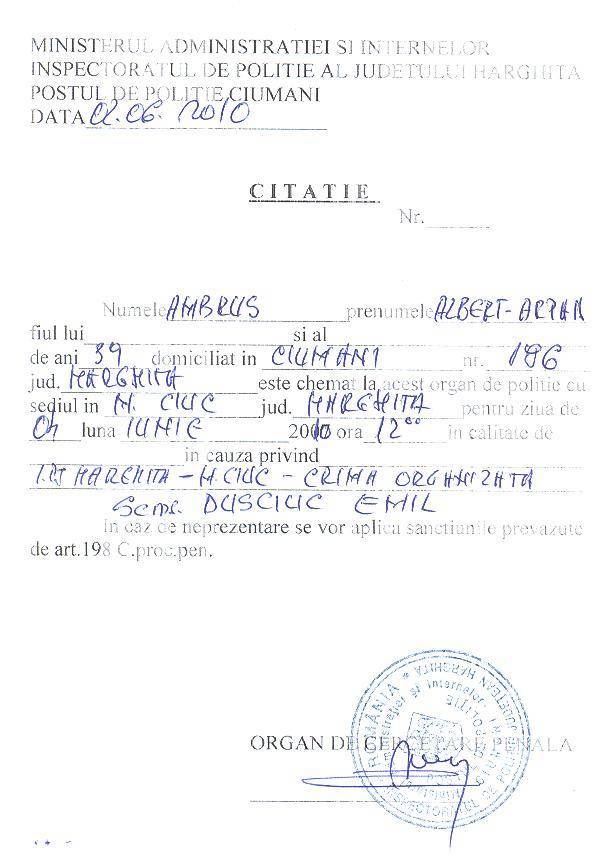 MINISTERUL ADMINISTRATIEI SI INTERNELOR
INSPECTORATUL DE POLITIE AL JUDETULUI HARGHITA
POSTUL DE POLITIE CIUMANI
DATA 02.06. 2010
CITATIE
Nr.
Numele AMBRUS prenumele ALBERT-ARPAN
fiul lui si al
de ani 39 domiciliat in CIUMANI nr. 196
jud. HARGHITA este chemat la acest organ de politie cu
sediul in M. CIUC jud. HARGHITA pentru ziua de
luna IUNIE 2010 ora 12⁰⁰ in calitate de
in cauza privind
IPJ HARGHITA - M. CIUC - CRIMA ORGANIZATA
DUSCIUC EMIL
In caz de neprezentare se vor aplica sanctiunile prevazute
de art.198 C.proc.pen.
ORGAN DE CERCETARE PENALA
ROMÂNIA
INSPECTORATUL DE POLITIE JUDETEAN HARGHITA